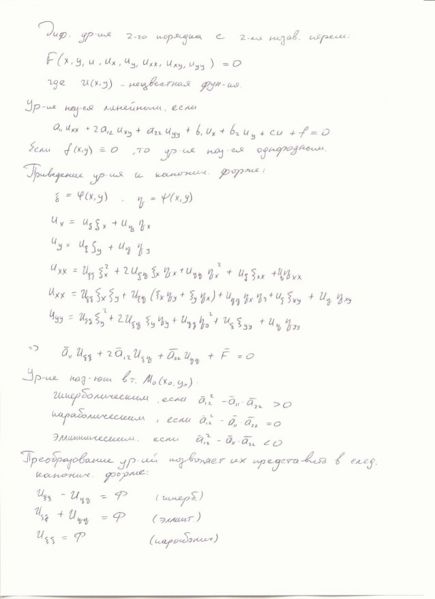 Диф. ур-ия 2-го порядка с 2-мя незав. перем.
F(x, y, u, uₓ, u_y, uₓₓ, uₓy, u_yy) = 0
где u(x,y) - неизвестная фун-ия.
Ур-ие наз-ся линейным, если
a₁₁uₓₓ + 2a₁₂uₓy + a₂₂u_yy + b₁uₓ + b₂u_y + cu + f = 0
Если f(x,y) ≡ 0, то ур-ие наз-ся однородным.
Приведение ур-ия к канонич. форме:
ξ = φ(x,y), η = ψ(x,y)
u_x = u_ξ ξ_x + u_η η_x
u_y = u_ξ ξ_y + u_η η_y
u_xx = u_ξξ ξ_x² + 2u_ξη ξ_x η_x + u_ηη η_x² + u_ξ ξ_xx + u_η η_xx
u_xx = u_ξξ ξ_x ξ_y + u_ξη (ξ_x η_y + ξ_y η_x) + u_ηη η_x η_y + u_ξ ξ_xy + u_η η_xy
u_yy = u_ξξ ξ_y² + 2u_ξη ξ_y η_y + u_ηη η_y² + u_ξ ξ_yy + u_η η_yy
=> ā₁₁ u_ξξ + 2ā₁₂ u_ξη + ā₂₂ u_ηη + F̄ = 0
Ур-ие наз-ют в т. M₀(x₀,y₀)
гиперболическим, если ā₁₂² - ā₁₁·ā₂₂ > 0
параболическим, если ā₁₂² - ā₁₁·ā₂₂ = 0
эллиптическим, если ā₁₂² - ā₁₁·ā₂₂ < 0
Преобразование ур-ий позволяет их представить в след.
канонич. форме:
u_ξξ - u_ηη = Φ (гиперб)
u_ξξ + u_ηη = Φ (эллипт)
u_ξξ = Φ (параболич)